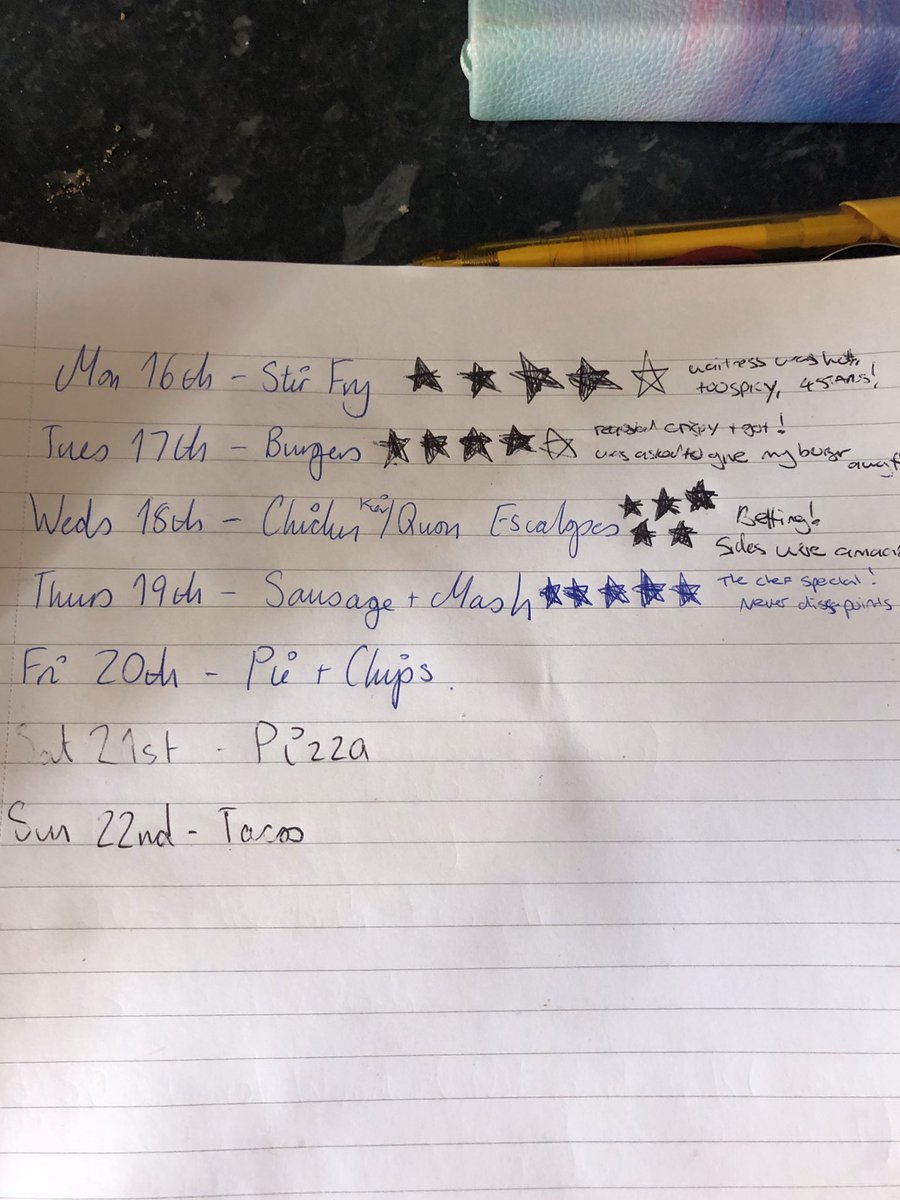 Mon 16th - Stir Fry ★★★★☆ waitress was hot,
too spicy, 4 STARS!
Tues 17th - Burgers ★★★★☆ crispy + got!
was asked to give my burger away
Weds 18th - Chicken Kiev/Quorn Escalopes ★★★★★ Betting!
Sides were
Thurs 19th - Sausage + Mash ★★★★★ The chef special!
Never dissapoints
Fri 20th - Pie + Chips.
Sat 21st - Pizza
Sun 22nd - Tacos